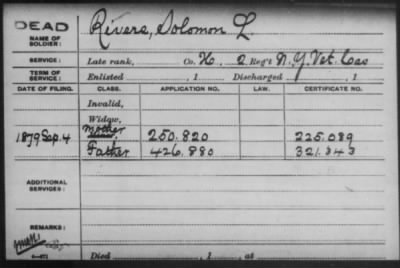 DEAD
NAME OF SOLDIER:
Rivers, Solomon L.
SERVICE:
Late rank, Co. H, 2 Reg't N.Y. Vet. Cav
TERM OF SERVICE:
Enlisted , 1 Discharged , 1
DATE OF FILING. CLASS. APPLICATION NO. LAW. CERTIFICATE NO.
Invalid,
Widow,
1879 Sep. 4 Mother 250.820 225.089
Father 426.880 321.343
ADDITIONAL SERVICES:
REMARKS:
Died , 1 , at